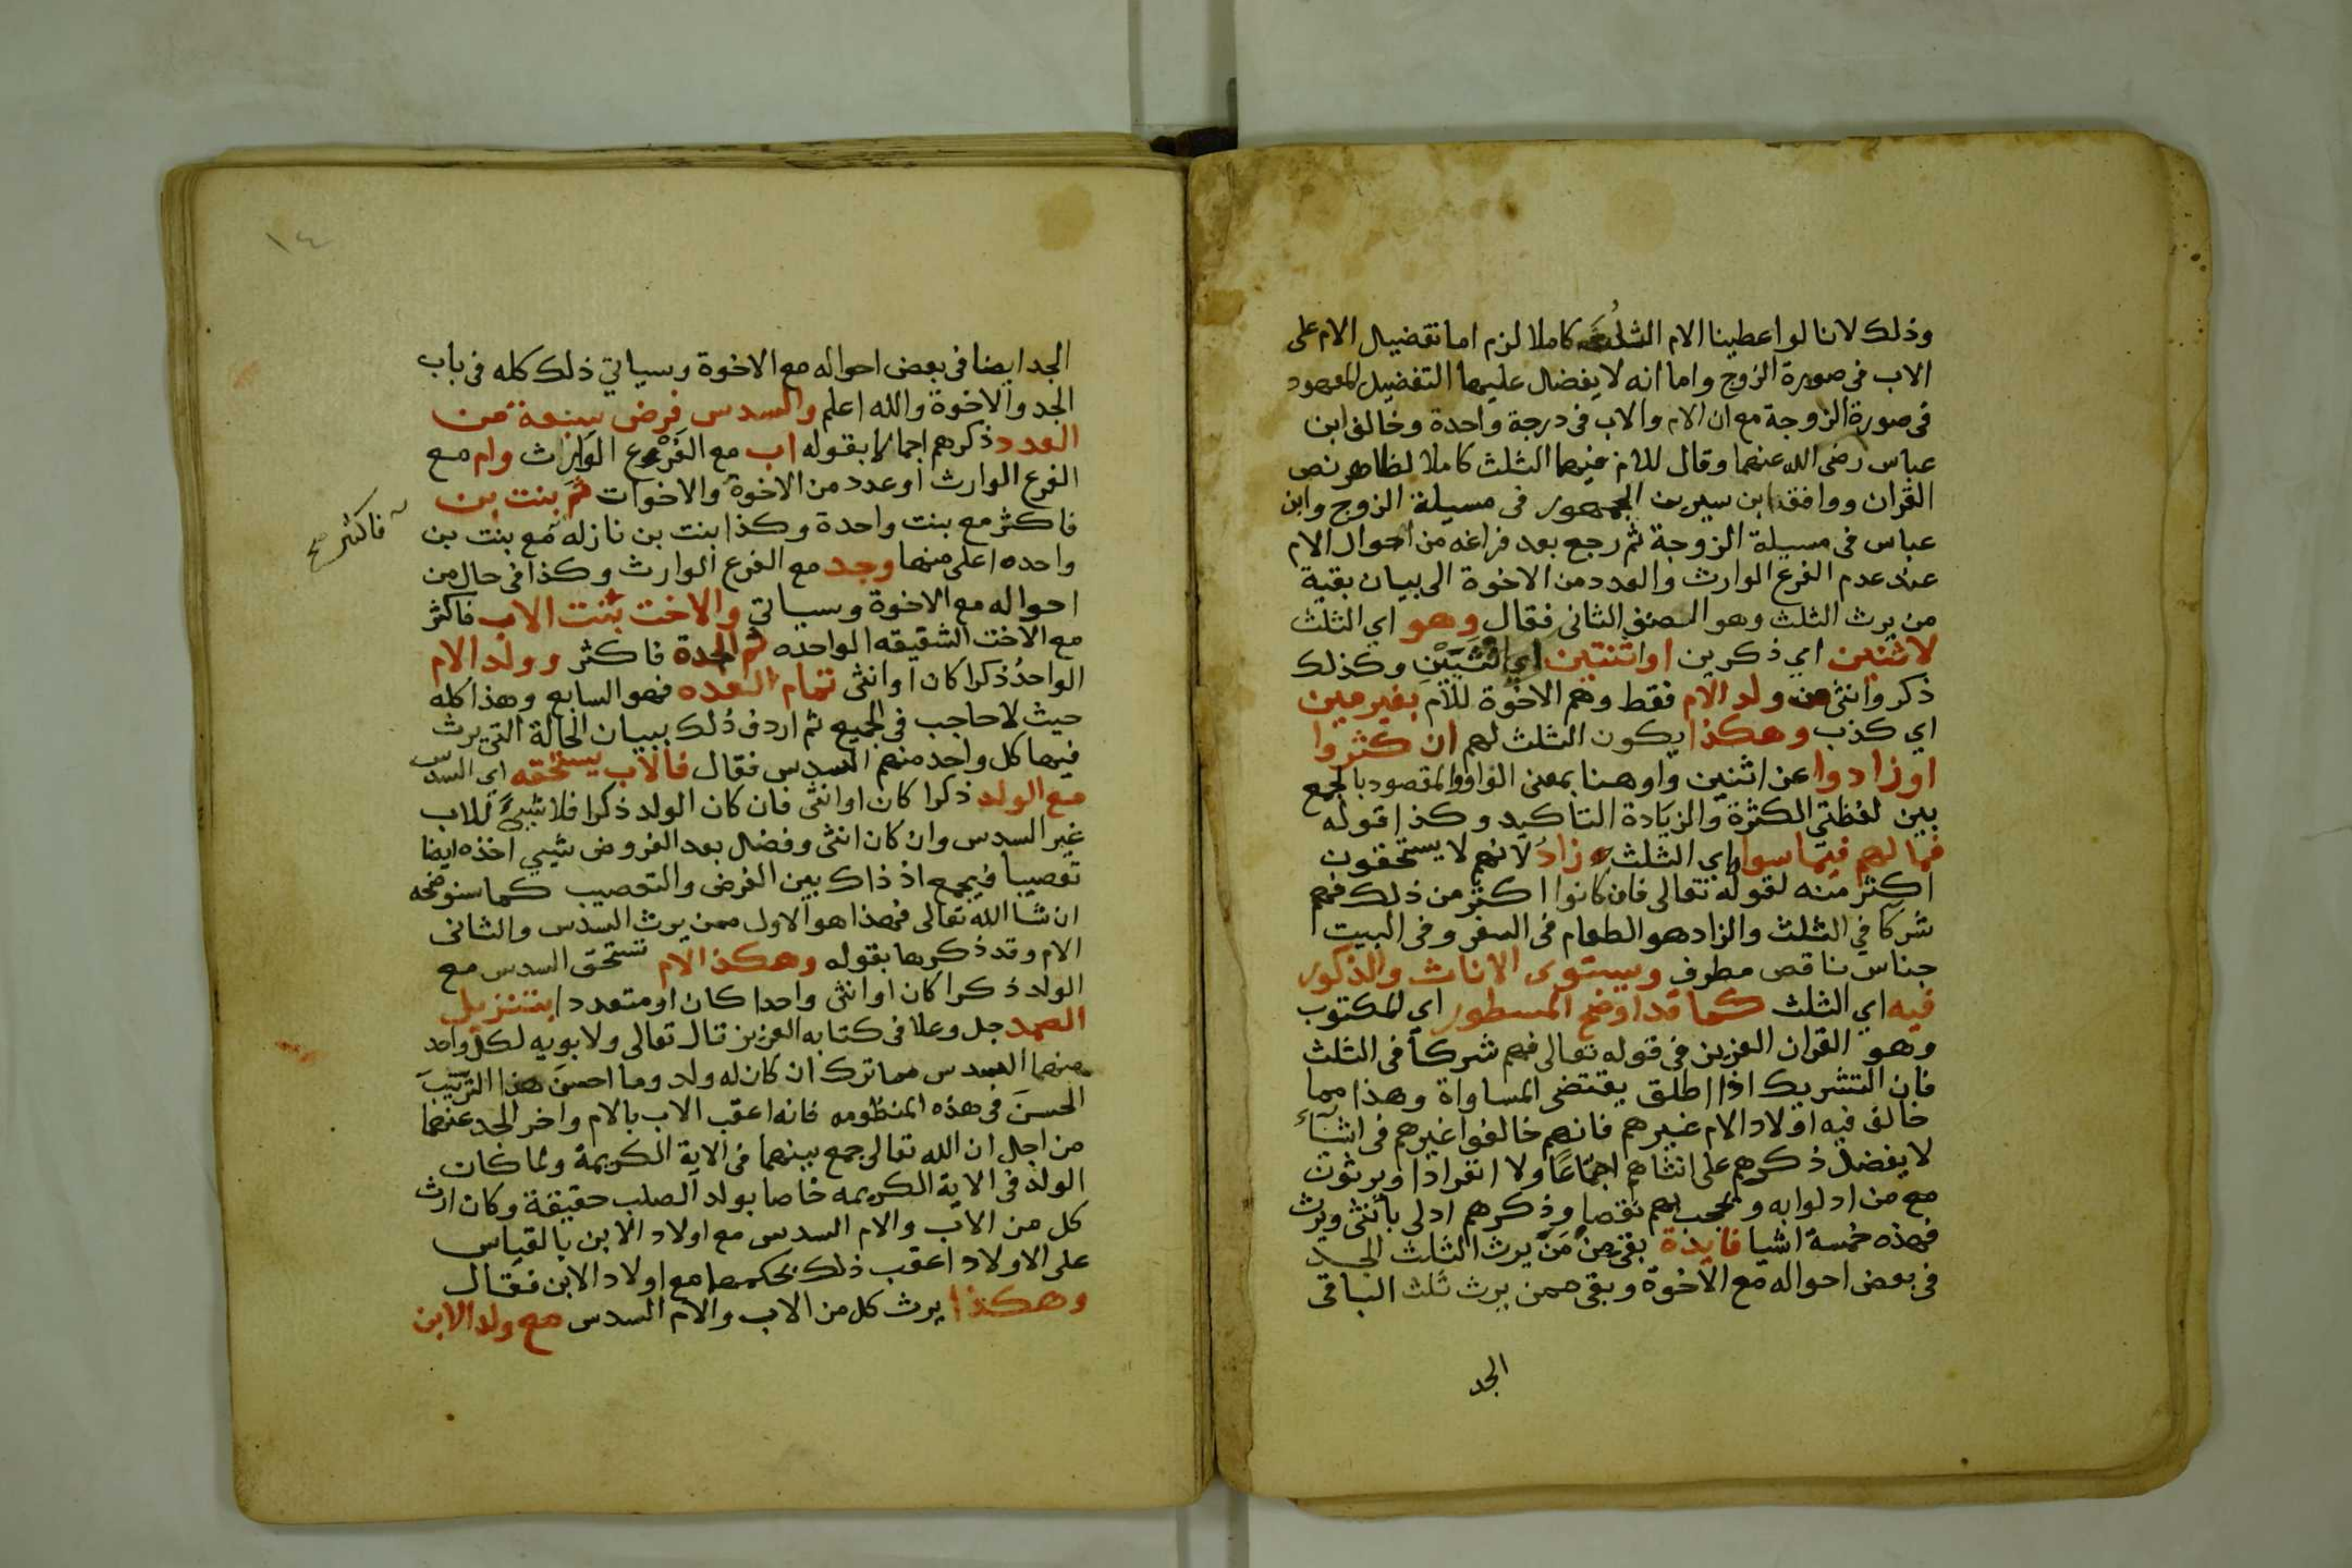 وذلك لانا لو اعطينا الام الثلث كاملا لزم اما تفضيل الام على
الاب في صورة الزوج واما انه لا يفضل عليها التفضيل المعهود
في صورة الزوجة مع ان الام والاب في درجة واحدة وخالف ابن
عباس رضى الله عنهما وقال للام فيهما الثلث كاملا لظاهر نص
القران ووافق ابن سيرين الجمهور في مسيلة الزوج وابن
عباس في مسيلة الزوجة ثم رجع بعد فراغه من احوال الام
عند عدم الفرع الوارث والعدد من الاخوة الى بيان بقية
من يرث الثلث وهو الصنف الثانى فقال وهو اي الثلث
لاثنين اي ذكرين او اثنتين اي انثيين وكذلك
ذكر وانثى من ولد الام فقط وهم الاخوة للام بغير مين
اي كذب وهكذا يكون الثلث لهم ان كثروا
او زادوا عن اثنين واو هنا بمعنى الواو والمقصود بالجمع
بين لفظتي الكثرة والزيادة التاكيد وكذا قوله
فما لهم فيما سواه اي الثلث زاد لانهم لا يستحقون
اكثر منه لقوله تعالى فان كانوا اكثر من ذلك فهم
شركا في الثلث والزاد هو الطعام في السفر وفي البيت
جناس ناقص مطرف ويستوى الاناث والذكور
فيه اي الثلث كما قد اوضح المسطور اي المكتوب
وهو القران العزيز في قوله تعالى فهم شركاء في الثلث
فان التشريك اذا اطلق يقتضى المساواة وهذا مما
خالف فيه اولاد الام غيرهم فانهم خالفوا غيرهم في اشياء
لا يفضل ذكرهم على انثاهم اجتماعا ولا انفرادا ويرثون
مع من ادلوا به ويحجب بهم نقصا وذكرهم ادلى بأنثى ويرث
فهذه خمسة اشيا فايدة بقى من من يرث الثلث الجد
في بعض احواله مع الاخوة وبقى ممن يرث ثلث الباقى
الجد
١٤
الجد ايضا في بعض احواله مع الاخوة وسياتي ذلك كله في باب
الجد والاخوة والله اعلم والسدس فرض سبعة من
العدد ذكرهم اجمالا بقوله اب مع الفرع الوارث وام مع
الفرع الوارث او عدد من الاخوة والاخوات ثم بنت بن
فاكثر مع بنت واحدة وكذا بنت بن نازله مع بنت بن
فاكثر صح
واحده اعلى منها وجد مع الفرع الوارث وكذا في حال من
احواله مع الاخوة وسياتي والاخت بنت الاب فاكثر
مع الاخت الشقيقه الواحده ثم الجدة فاكثر وولد الام
الواحد ذكرا كان او انثى تمام العده فهو السابع وهذا كله
حيث لا حاجب في الجميع ثم اردف ذلك ببيان الحالة التي يرث
فيها كل واحد منهم السدس فقال فالاب يستحقه اي السدس
مع الولد ذكرا كان او انثى فان كان الولد ذكرا فلا شيئ للاب
غير السدس وان كان انثى وفضل بعد الفروض شيي اخذه ايضا
تعصيبا فيجمع اذ ذاك بين الفرض والتعصيب كما سنوضحه
ان شا الله تعالى فهذا هو الاول ممن يرث السدس والثانى
الام وقد ذكرها بقوله وهكذا الام تستحق السدس مع
الولد ذكرا كان او انثى واحدا كان او متعددا بتنزيل
الصمد جل وعلا في كتابه العزيز قال تعالى ولابويه لكل واحد
منهما السدس مما ترك ان كان له ولد وما احسن هذا الترتيب
الحسن في هذه المنظومه فانه اعقب الاب بالام واخر الجد عنهما
من اجل ان الله تعالى جمع بينهما في الاية الكريمة ولما كان
الولد في الاية الكريمه خاصا بولد الصلب حقيقة وكان ارث
كل من الاب والام السدس مع اولاد الابن بالقياس
على الاولاد اعقب ذلك بحكمهما مع اولاد الابن فقال
وهكذا يرث كل من الاب والام السدس مع ولد الابن